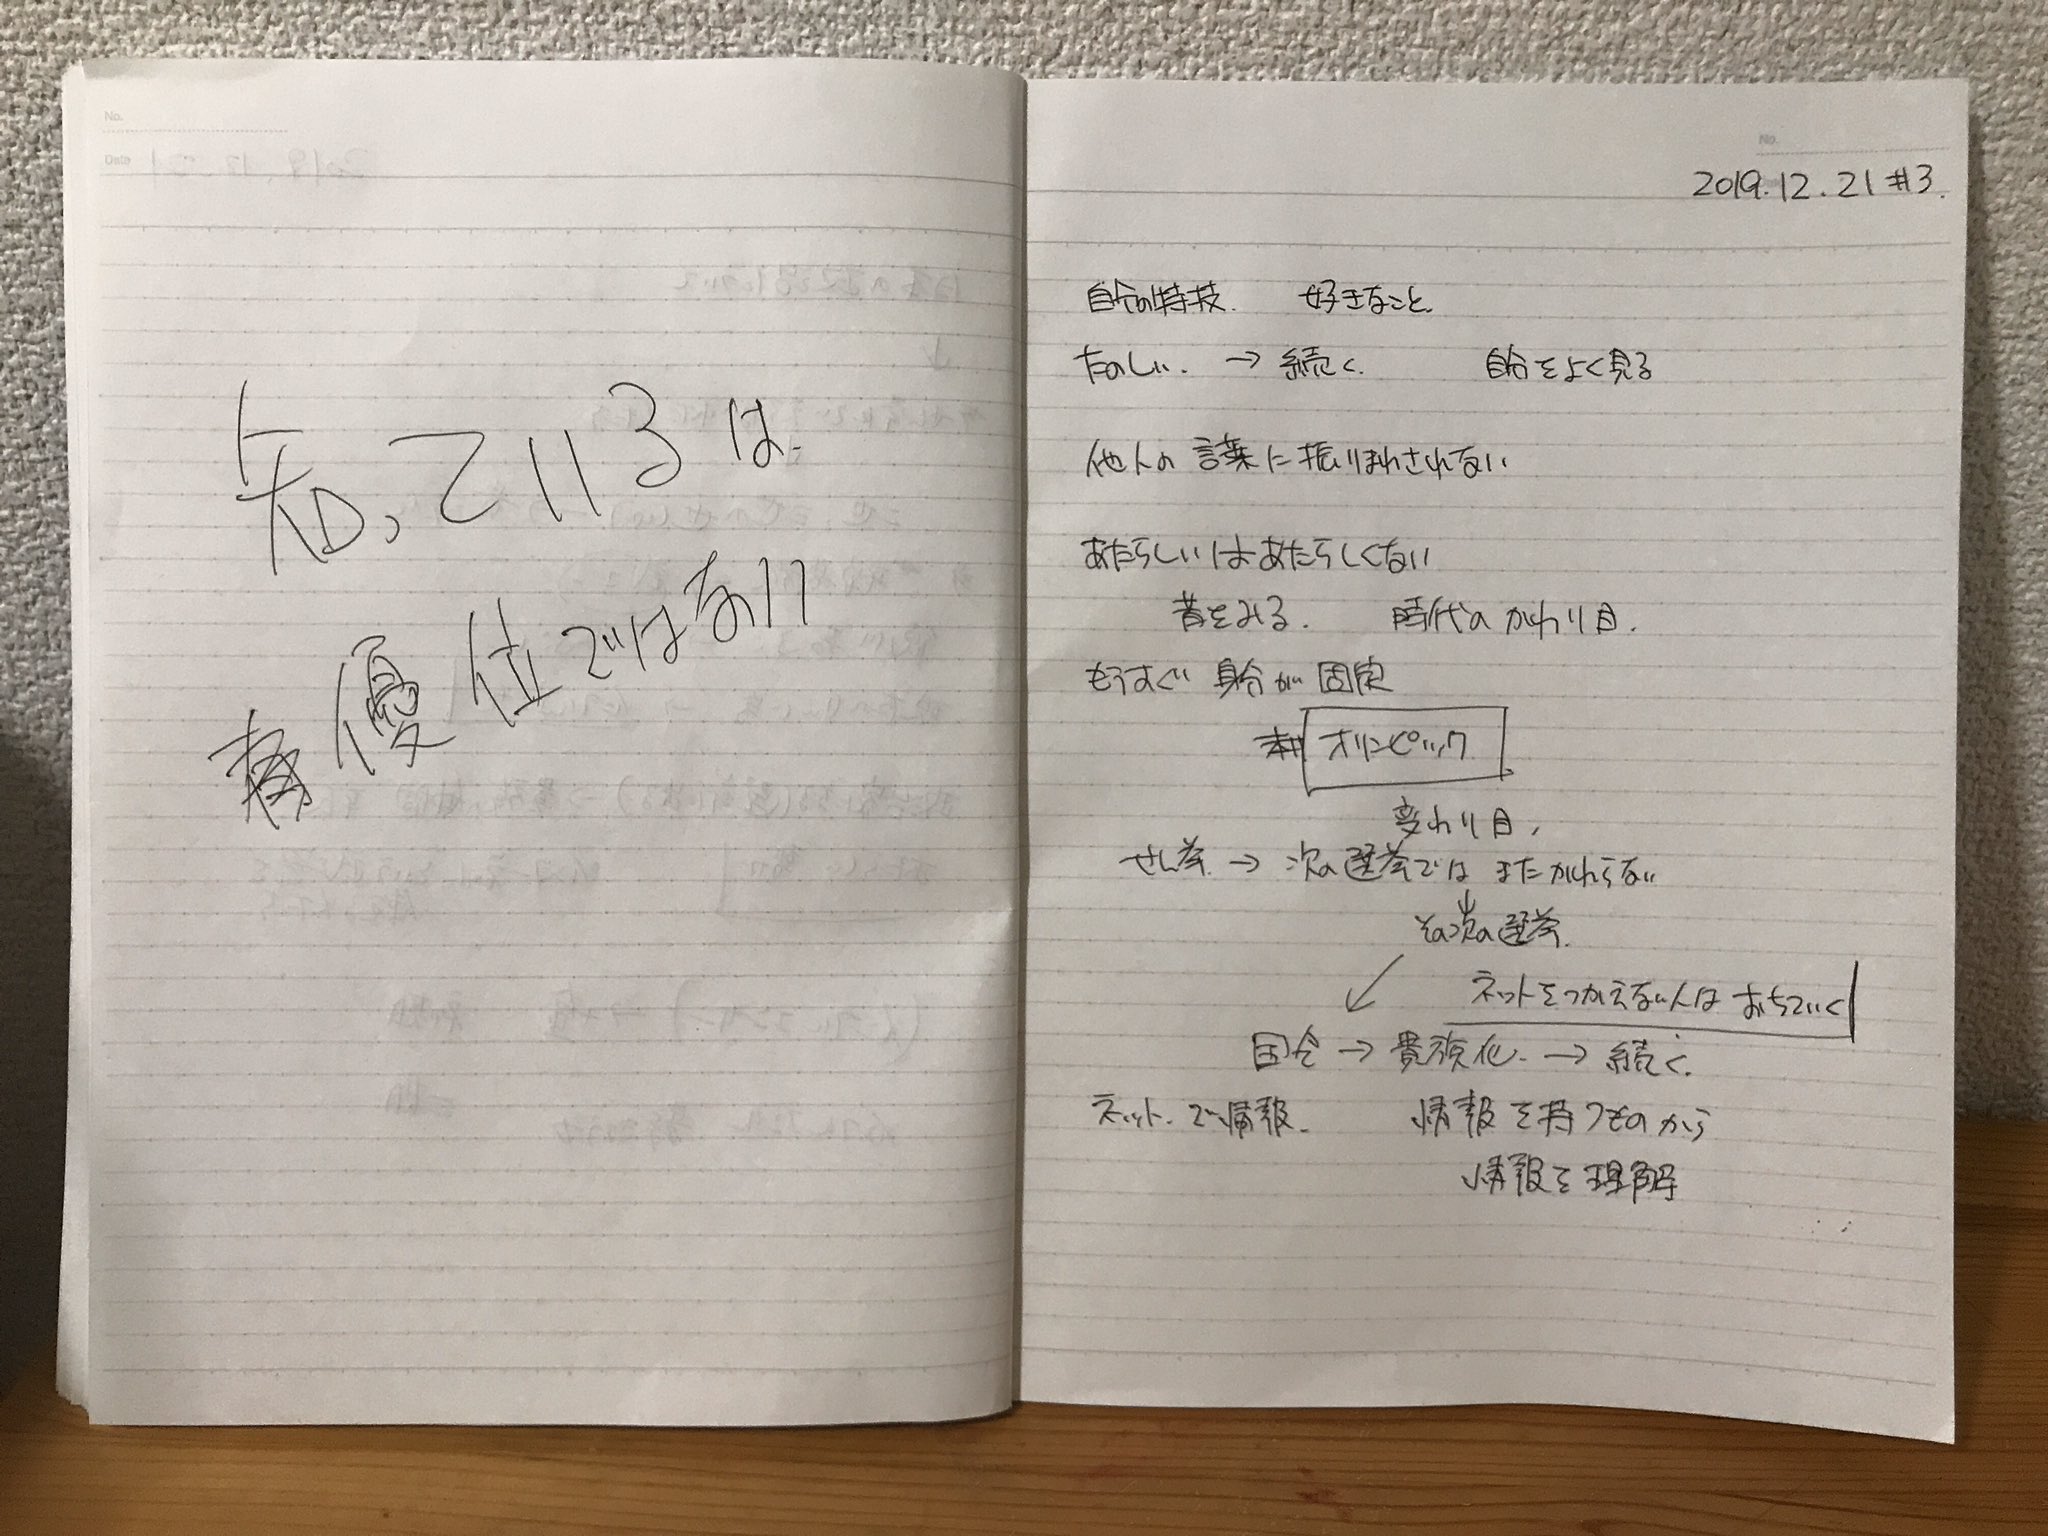 No.
Date
知っているは
優位ではない
No.
2019.12.21 #3.
自分の特技. 好きなこと.
たのしい. → 続く. 自分をよく見る
他人の言葉に振りまわされない
あたらしいはあたらしくない
昔をみる. 時代のかわり目.
もうすぐ 身分が固定
オリンピック
変わり目,
せん挙 → 次の選挙では まだかわらない
↓
その次の選挙.
↙
ネットをつかえない人は おちていく
国会 → 貴族化. → 続く.
ネット. で情報. 情報を持つものから
情報を理解